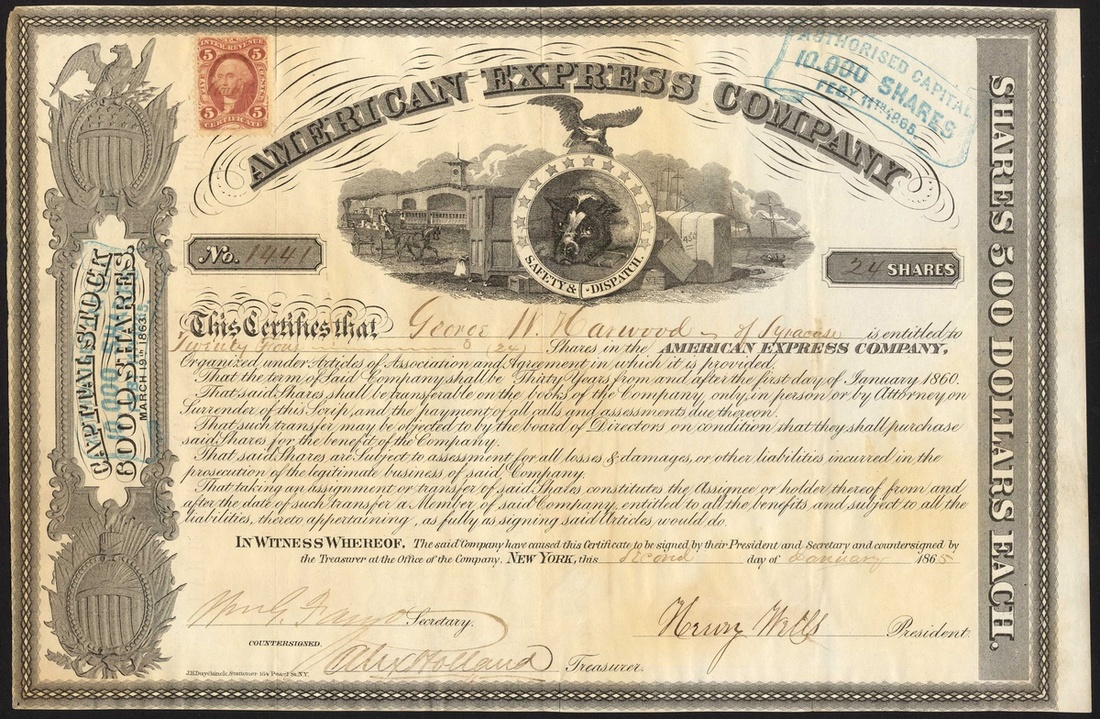 INTER. REVENUE
5 5
FIVE CENTS
5 5
CERTIFICATE
AMERICAN EXPRESS COMPANY
AUTHORISED CAPITAL
10,000 SHARES
FEBY 11TH 1865.
SAFETY & DISPATCH.
No. 1441
24 SHARES
This Certifies that George W. Harwood of Syracuse is entitled to
Twenty four (24) Shares in the AMERICAN EXPRESS COMPANY,
Organized under Articles of Association and Agreement in which it is provided.
That the term of Said Company shall be Thirty Years from and after the first day of January 1860.
That said Shares shall be transferable on the books of the Company only, in person or by Attorney on
Surrender of this Scrip, and the payment of all calls and assessments due thereon.
That such transfer may be objected to by the board of Directors on condition that they shall purchase
said Shares for the benefit of the Company.
That said Shares are Subject to assessment for all losses & damages, or other liabilities incurred in the
prosecution of the legitimate business of said Company.
That taking an assignment or transfer of said Shares constitutes the Assignee or holder thereof, from and
after the date of such transfer a Member of said Company, entitled to all the benefits and subject to all the
liabilities, thereto appertaining, as fully as signing said Articles would do.
IN WITNESS WHEREOF. The said Company have caused this Certificate to be signed by their President and Secretary and countersigned by
the Treasurer at the Office of the Company. NEW YORK, this Second day of January 1865
Wm G. Fargo Secretary.
Henry Wells President.
COUNTERSIGNED.
Alex Holland Treasurer.
J.H. Duyckinck, Stationer 164 Pearl St. N.Y.
CAPITAL STOCK
6000 SHARES.
MARCH 19TH 1863
10,000 SHARES
SHARES 500 DOLLARS EACH.